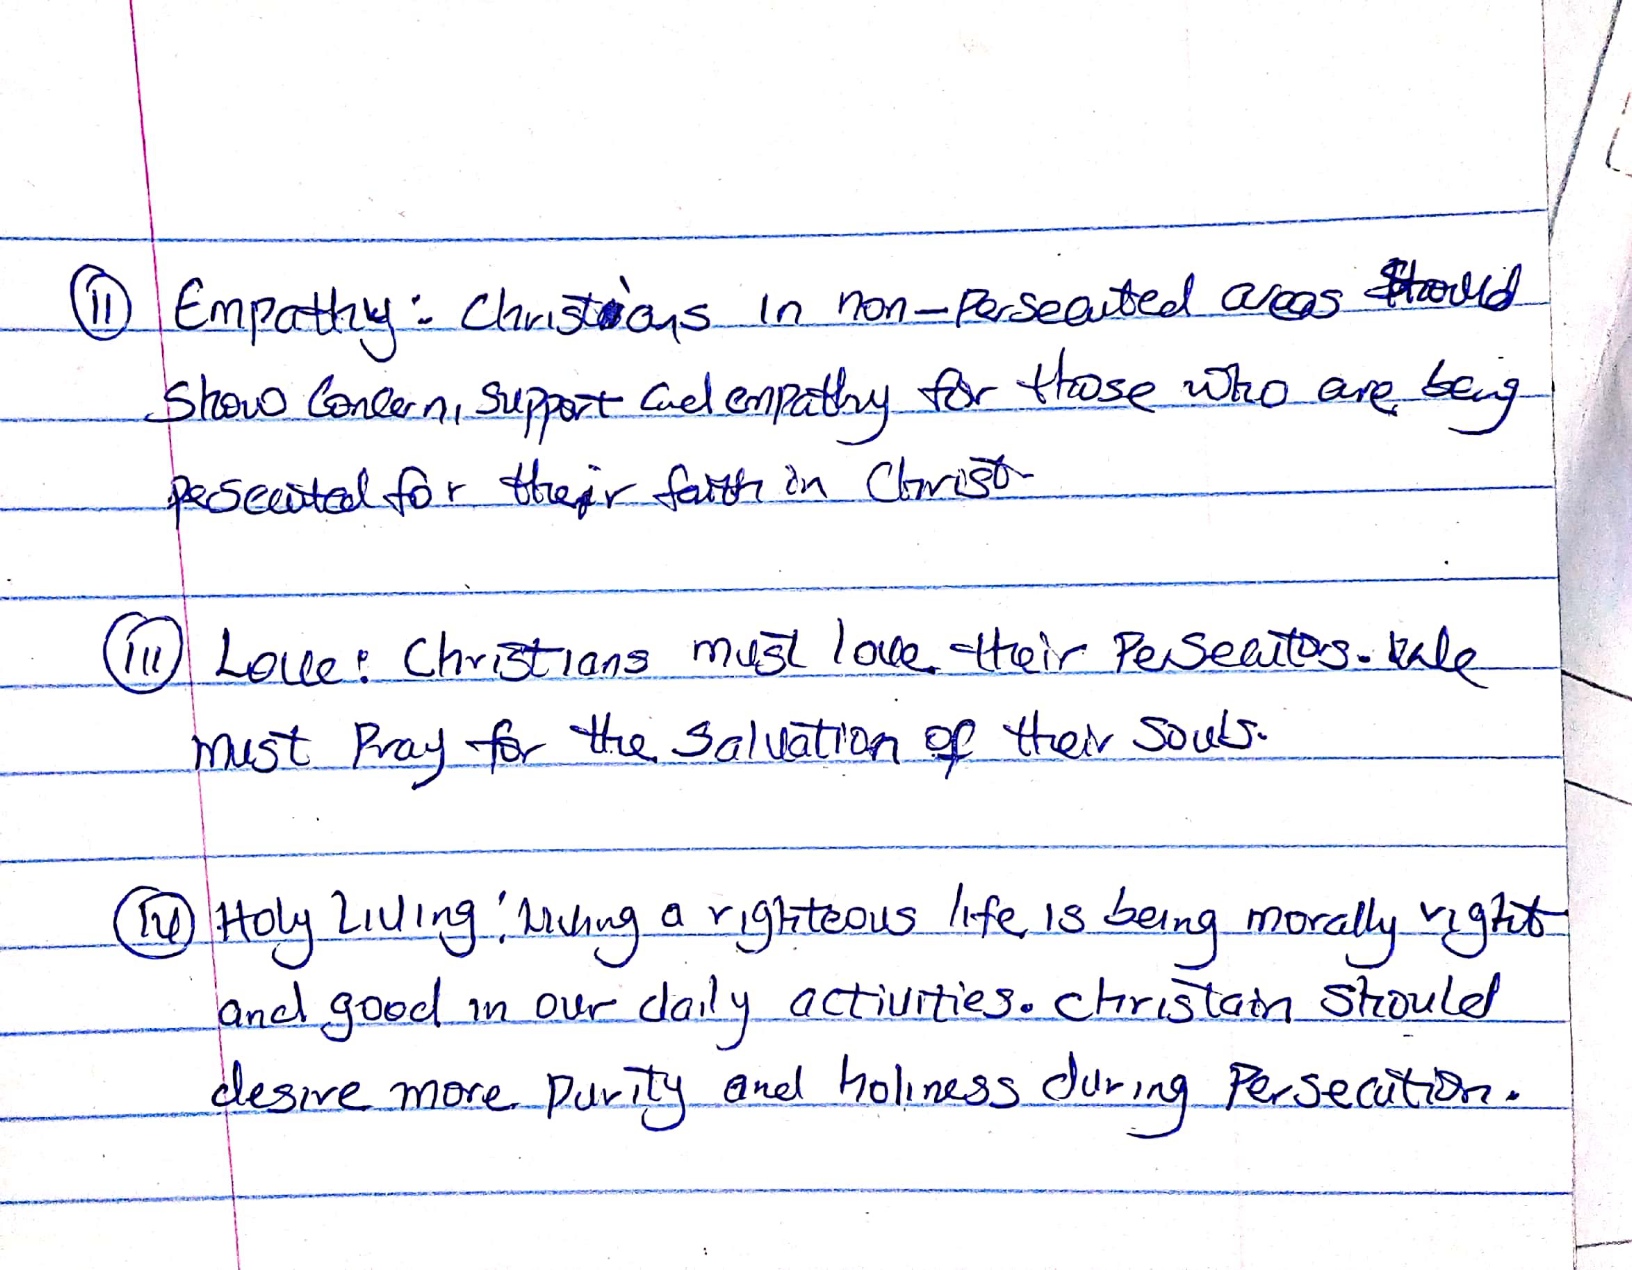 (ii) Empathy: Christians in non-Persecuted areas should
Show Concern, support and empathy for those who are being
persecuted for their faith in Christ
(iii) Love: Christians must love their Persecutors. We
must Pray for the Salvation of their Souls.
(iv) Holy Living: Living a righteous life is being morally right
and good in our daily activities. Christain should
desire more purity and holiness during Persecution.